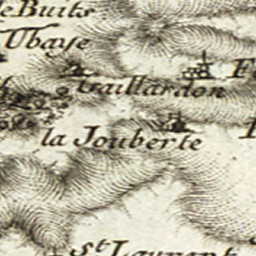 le Buits
Ubaye
Gaillardon
la Jouberte
St. Laurent